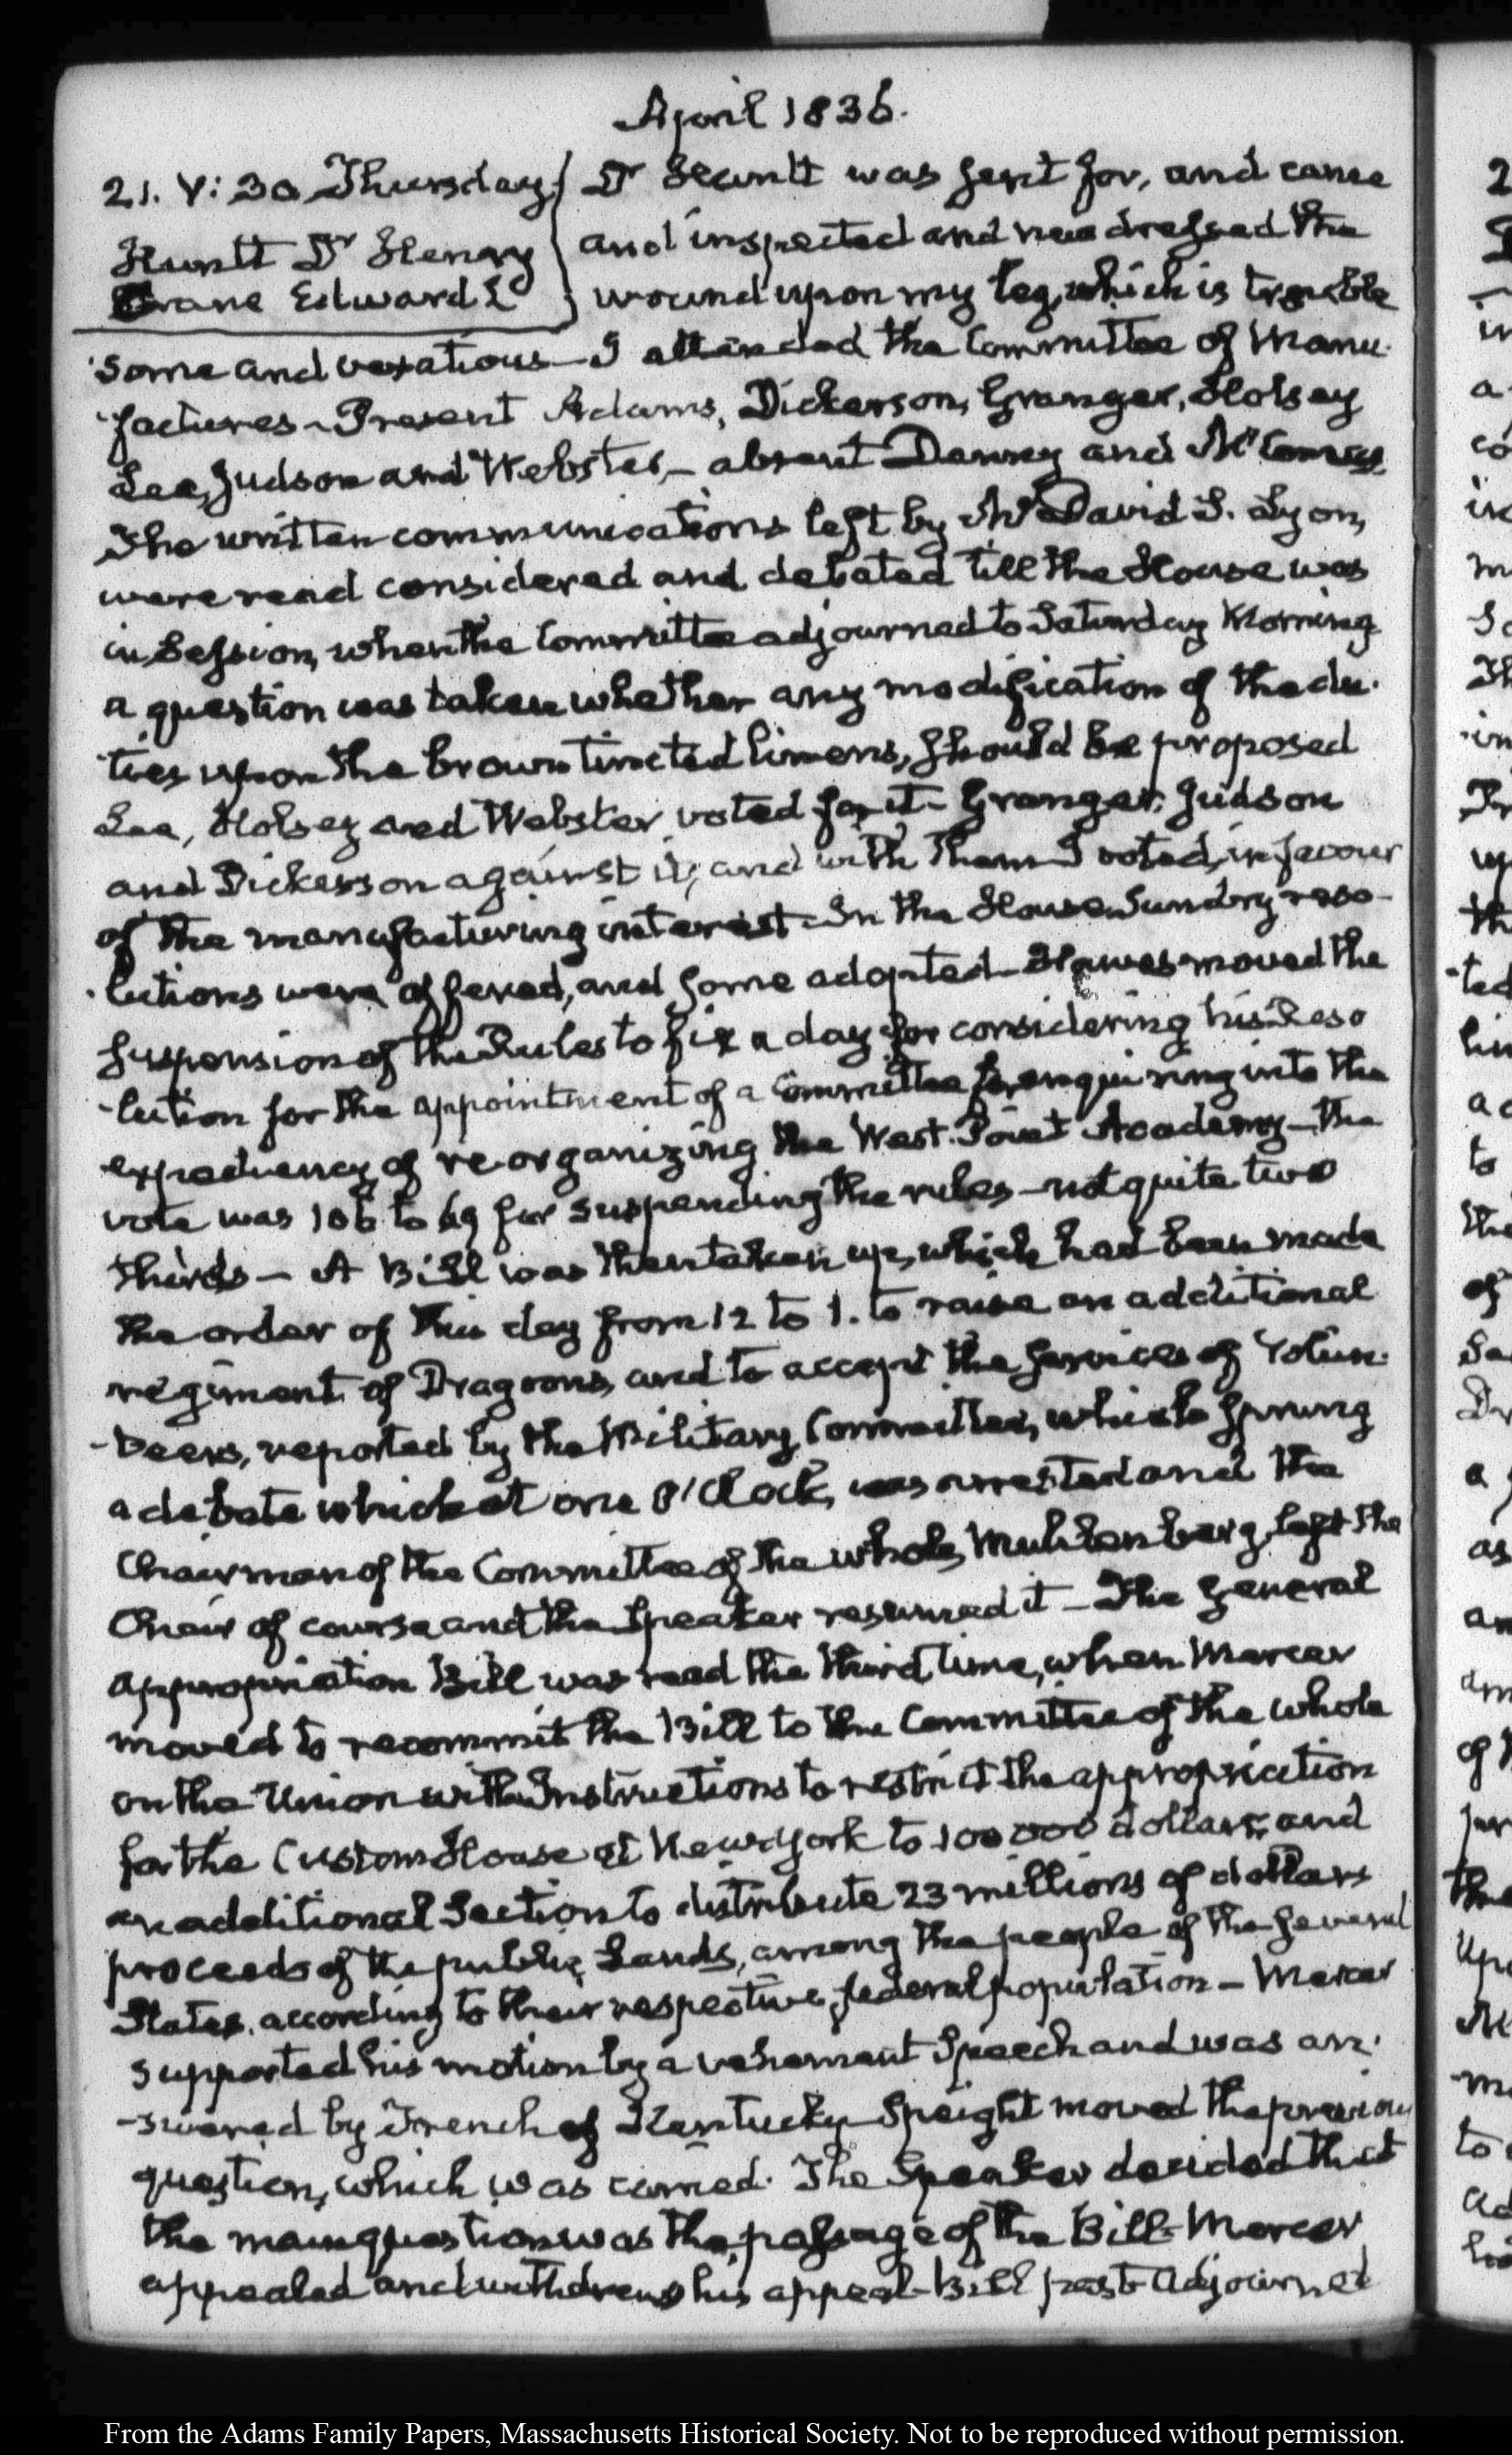 April 1836.
21. V: 30 Thursday
Huntt Dr Henry
Crane Edward
Dr Huntt was sent for, and came
and inspected and new dressed the
wound upon my leg, which is trouble
some and vexatious—I attended the Committee of Manu-
factures—Present Adams, Dickerson, Granger, Holsey
Lee, Judson and Webster—absent Denny and McComas.
The written communications left by Mr David S. Lyon,
were read considered and debated till the House was
in Session, when the Committee adjourned to Saturday Morning
a question was taken whether any modification of the du-
ties upon the brown tincted linens, should be proposed
Lee, Holsey and Webster voted for it—Granger, Judson
and Dickerson against it; and with them I voted, in favour
of the manufacturing interest—In the House, Sundry reso-
lutions were offered, and some adopted—Hawes moved the
suspension of the Rules to fix a day for considering his Reso
-lution for the appointment of a Committee for enquiring into the
expediency of re-organizing the West-Point Academy—the
vote was 106 to 69 for suspending the rules—not quite two
thirds—A Bill was then taken up, which had been made
the order of this day from 12 to 1. to raise an additional
regiment of Dragoons, and to accept the services of Volun-
-teers, reported by the Military Committee, which sprung
a debate which at one O'Clock, was arrested and the
Chairman of the Committee of the whole, Muhlenberg, left the
Chair of course and the Speaker resumed it—The general
appropriation Bill was read the third time, when Mercer
moved to recommit the Bill to the Committee of the whole
on the Union with Instructions to restrict the appropriation
for the Custom House at New York to 100 000 dollars; and
an additional Section to distribute 23 millions of dollars
proceeds of the public Lands, among the people of the several
States, according to their respective federal population—Mercer
supported his motion by a vehement Speech and was an-
-swered by French of Kentucky—Speight moved the previous
question, which was carried. The Speaker decided that
the main question was the passage of the Bill—Mercer
appealed and withdrew his appeal—Bill past—Adjourned
From the Adams Family Papers, Massachusetts Historical Society. Not to be reproduced without permission.